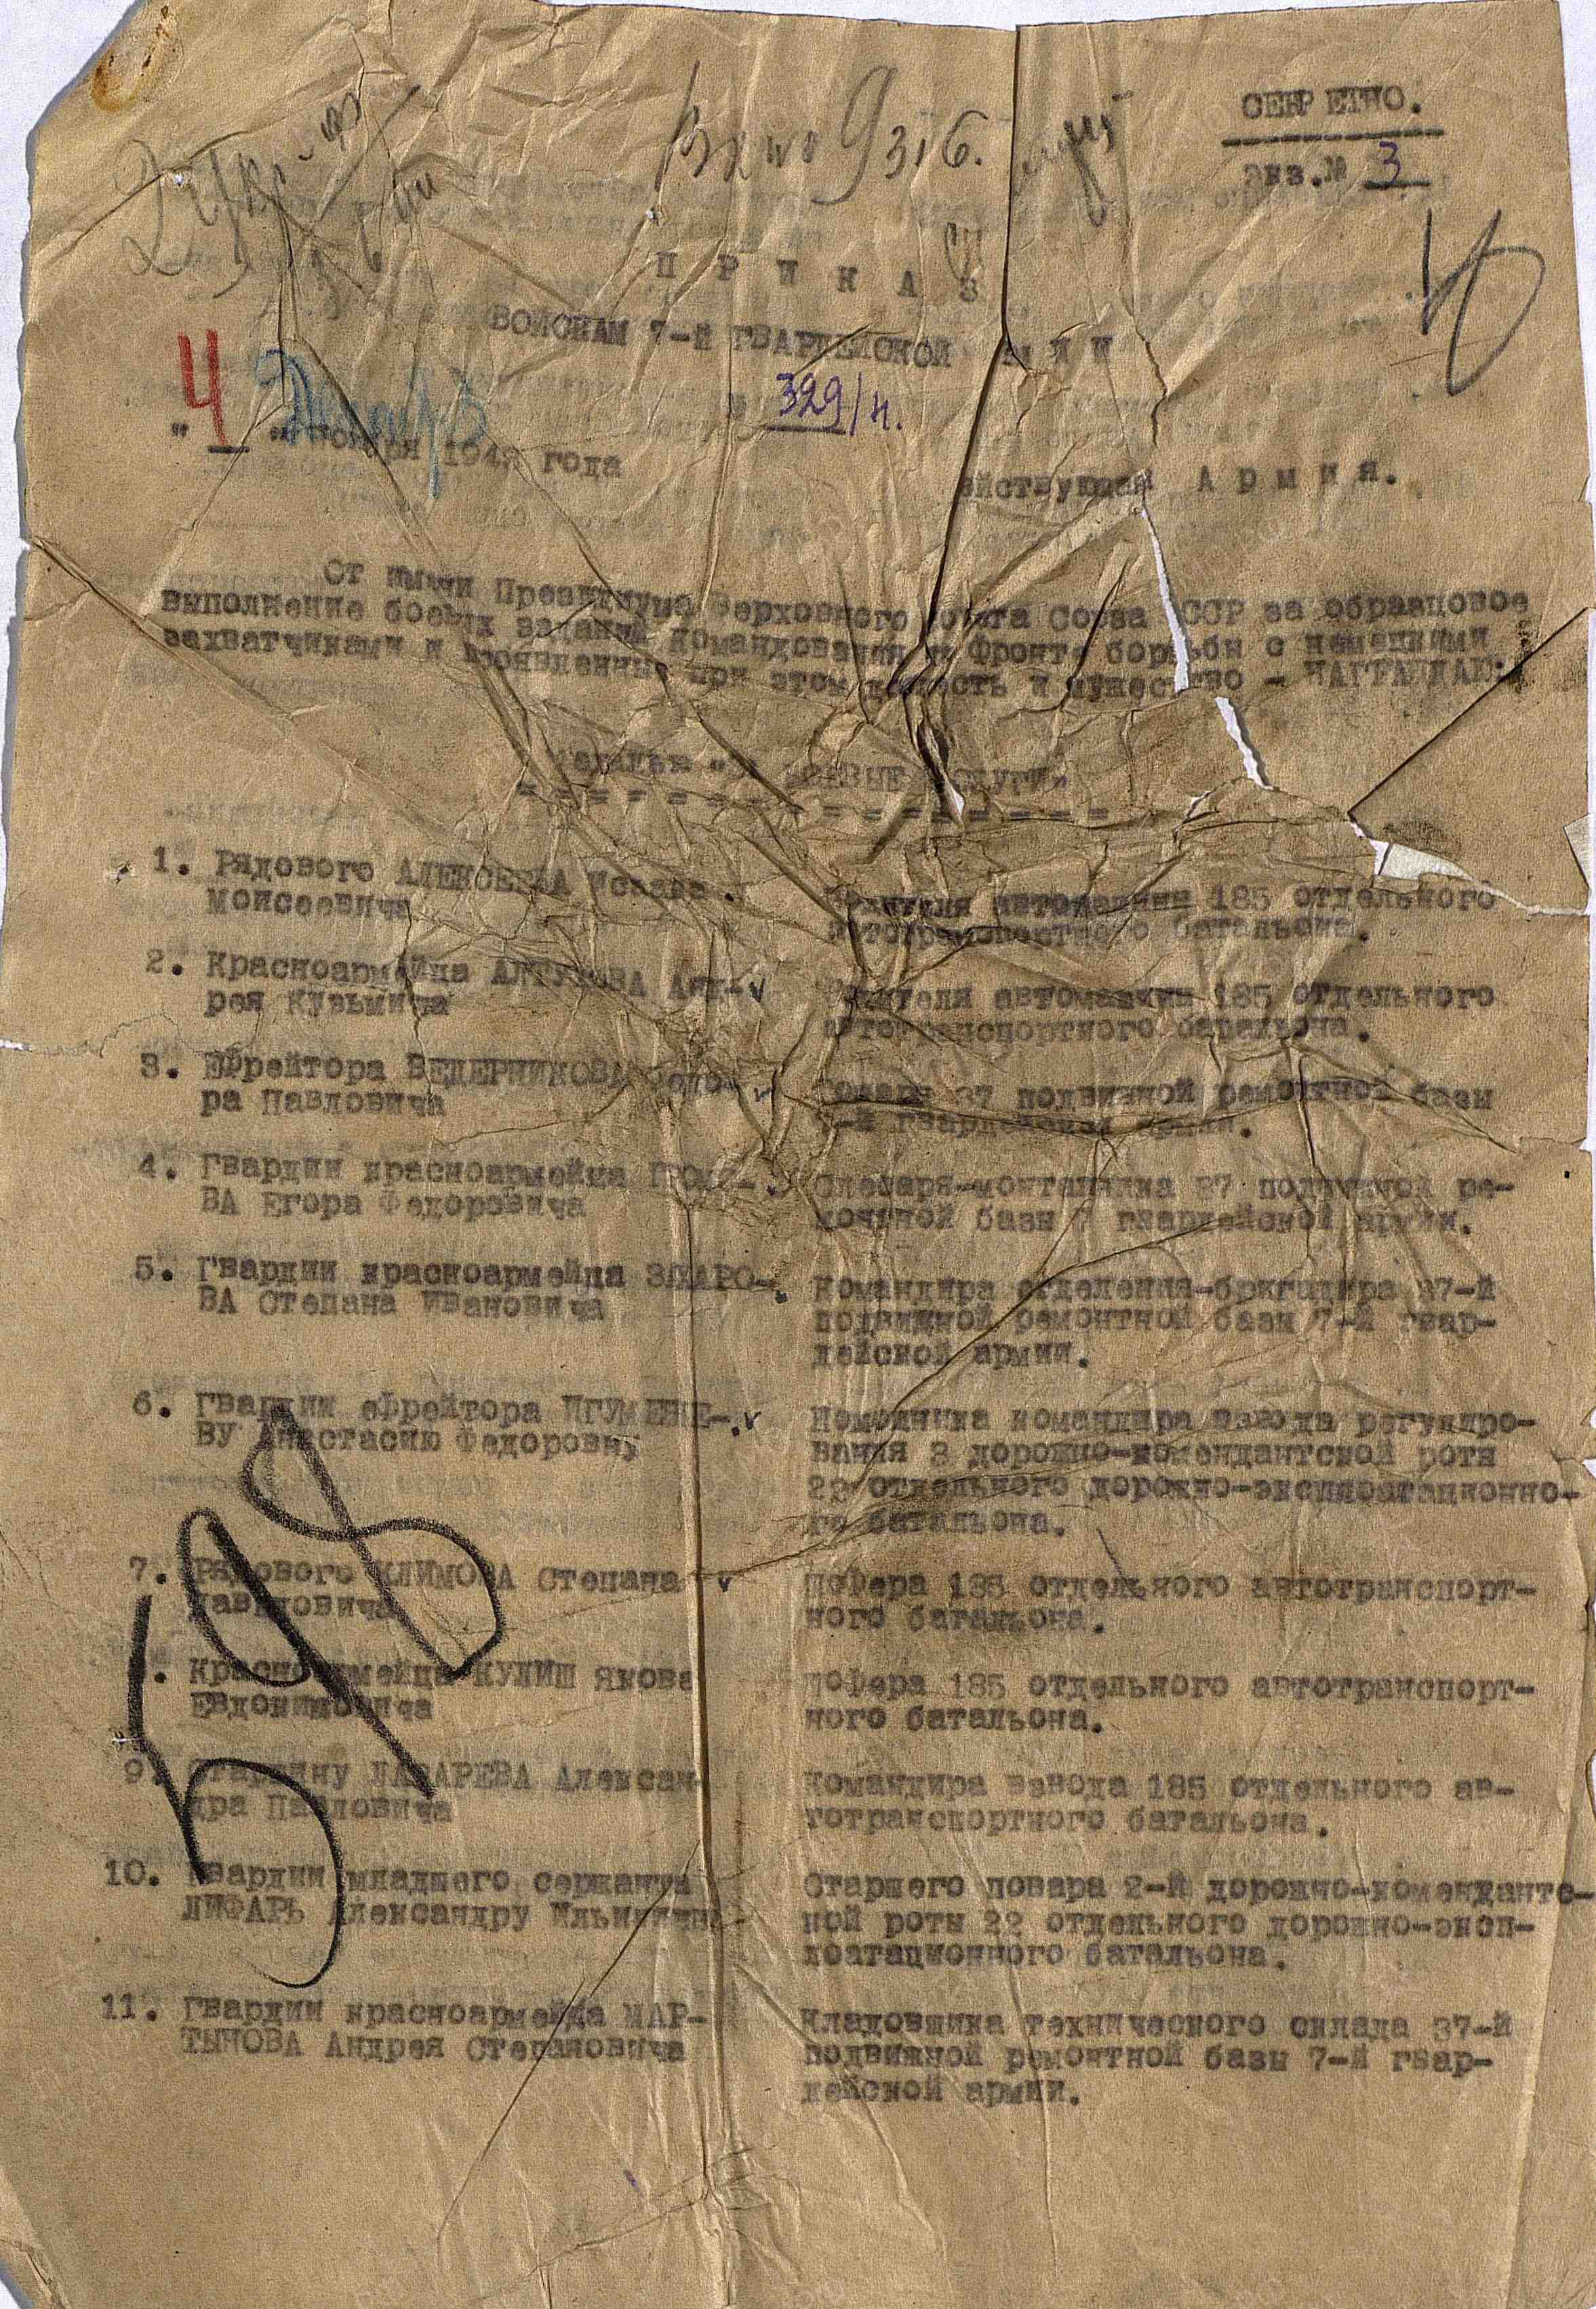 СЕКРЕТНО.
Экз.№ 3
Вх № 9316.
П Р И К А З
ВОЙСКАМ 7-Й ГВАРДЕЙСКОЙ
№ 329/н.
"4" ноября 194 года
ействующая Армия.
От имени Президиума Верховного Совета Союза ССР за образцовое
выполнение боевых заданий командования на фронте борьбы с немецкими
захватчиками и проявленные при этом доблесть и мужество - НАГРАЖДАЮ:
Медалью "ЗА БОЕВЫЕ ЗАСЛУГИ"
1. Рядового АЛЕКСЕЕВА Исаака
Моисеевича
Водителя автомашины 185 отдельного
автотранспортного батальона.
2. Красноармейца АЛТУХОВА Анд-
рея Кузьмича
Водителя автомашины 185 отдельного
автотранспортного батальона.
3. Ефрейтора ВЕДЕРНИКОВА Федо-
ра Павловича
37 подвижной ремонтной базы
7-й гвардейской армии.
4. Гвардии красноармейца ГРОМО-
ВА Егора Федоровича
Слесаря-монтажника 37 подвижной ре-
монтной базы 7 гвардейской армии.
5. Гвардии красноармейца ЗАХАРО-
ВА Степана Ивановича
Командира отделения-бригадира 37-й
подвижной ремонтной базы 7-й гвар-
дейской армии.
6. Гвардии ефрейтора ИГУМЕНЕ-
ВУ Анастасию Федоровну
Помощника командира взвода регулиро-
вания 3 дорожно-комендантской роты
22 отдельного дорожно-эксплоатационно-
го батальона.
7. Рядового КЛИМОВА Степана
Павловича
Шофера 185 отдельного автотранспорт-
ного батальона.
8. Красноармейца КУЛИШ Якова
Евдокимовича
Шофера 185 отдельного автотранспорт-
ного батальона.
9. Старшину ЛАЗАРЕВА Алексан-
дра Павловича
Командира взвода 185 отдельного ав-
тотранспортного батальона.
10. Гвардии младшего сержанта
ЛИФАРЬ Александру Ильиничну
Старшего повара 2-й дорожно-комендантс-
кой роты 22 отдельного дорожно-эксп-
лоатационного батальона.
11. Гвардии красноармейца МАР-
ТЫНОВА Андрея Степановича
Кладовщика технического склада 37-й
подвижной ремонтной базы 7-й гвар-
дейской армии.
598